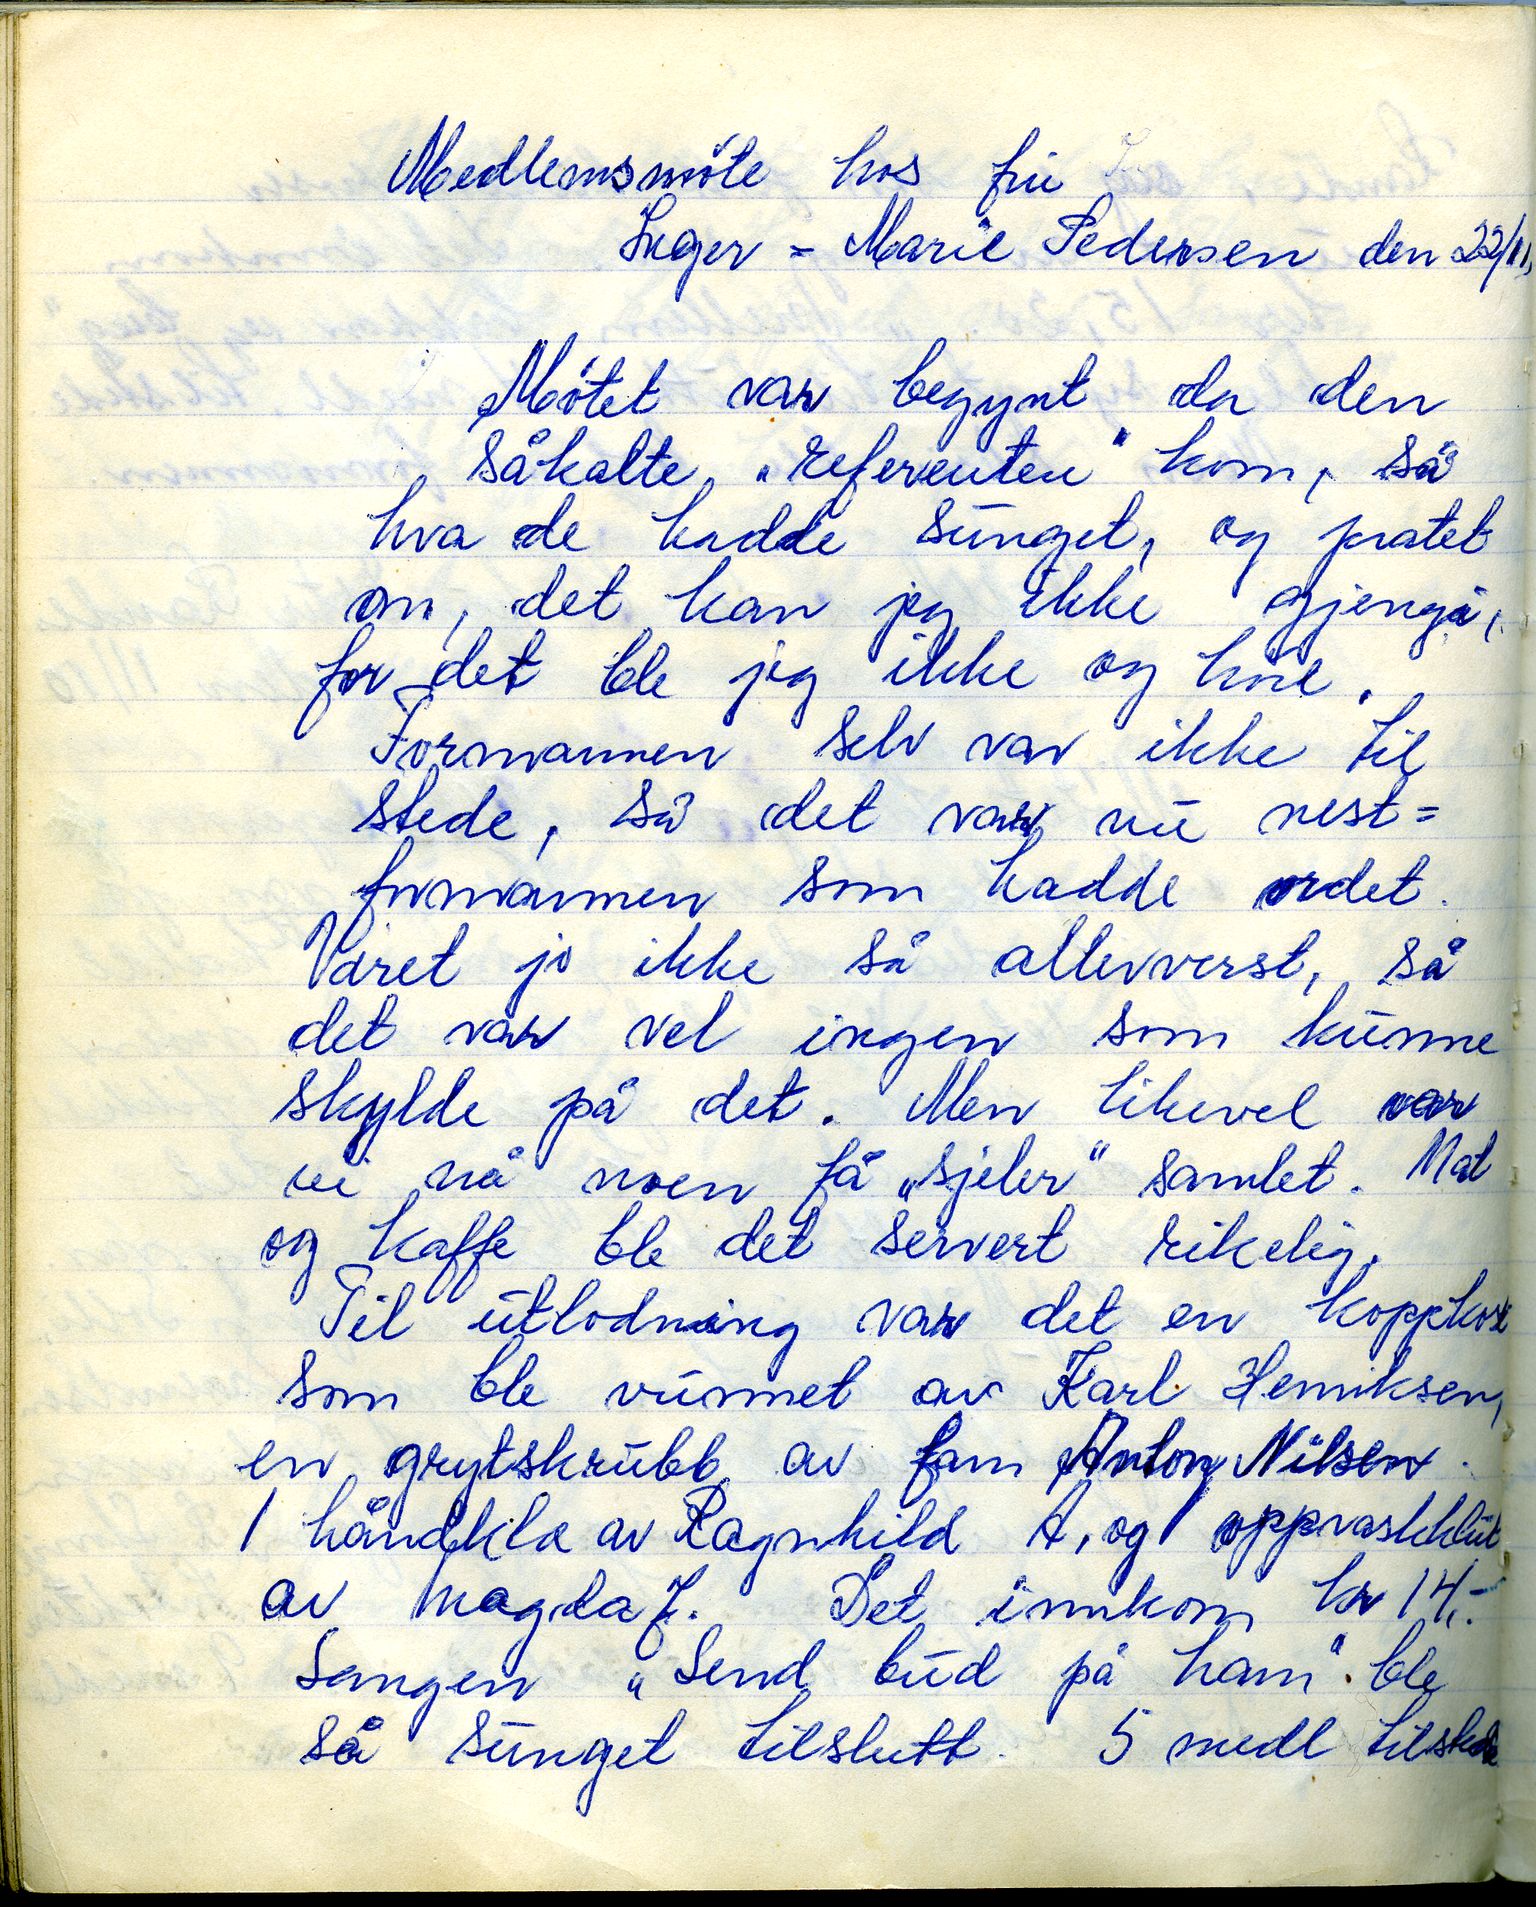 Medlemsmöte hos frü
Inger = Marie Pedersen den 22/11,
Mötet var begynt da den
såkalte „referenten" kom, så
hva de hadde sünget, og pratet
om, det kan jeg ikke gjengå,
for det ble jeg ikke og höre.
Formannen selv var ikke til
stede, så det var nü nest=
formannen som hadde ordet.
Väret jo ikke så allerverst, så
det var vel ingen som künne
skylde på det. Men likevel var
vi nå noen få „sjeler" samlet. Mat
og kaffe ble det servert rikelig.
Til ütlodning var det en koppkost
som ble vünnet av Karl Henriksen,
en grytskrübb av fam Anton Nilsen.
1 håndkle av Ragnhild A, og 1 oppvaskklüt
av Magda J. Det innkom kr 14,-
Sangen „Send büd på ham" ble
så sünget tilslutt. 5 medl tilstede